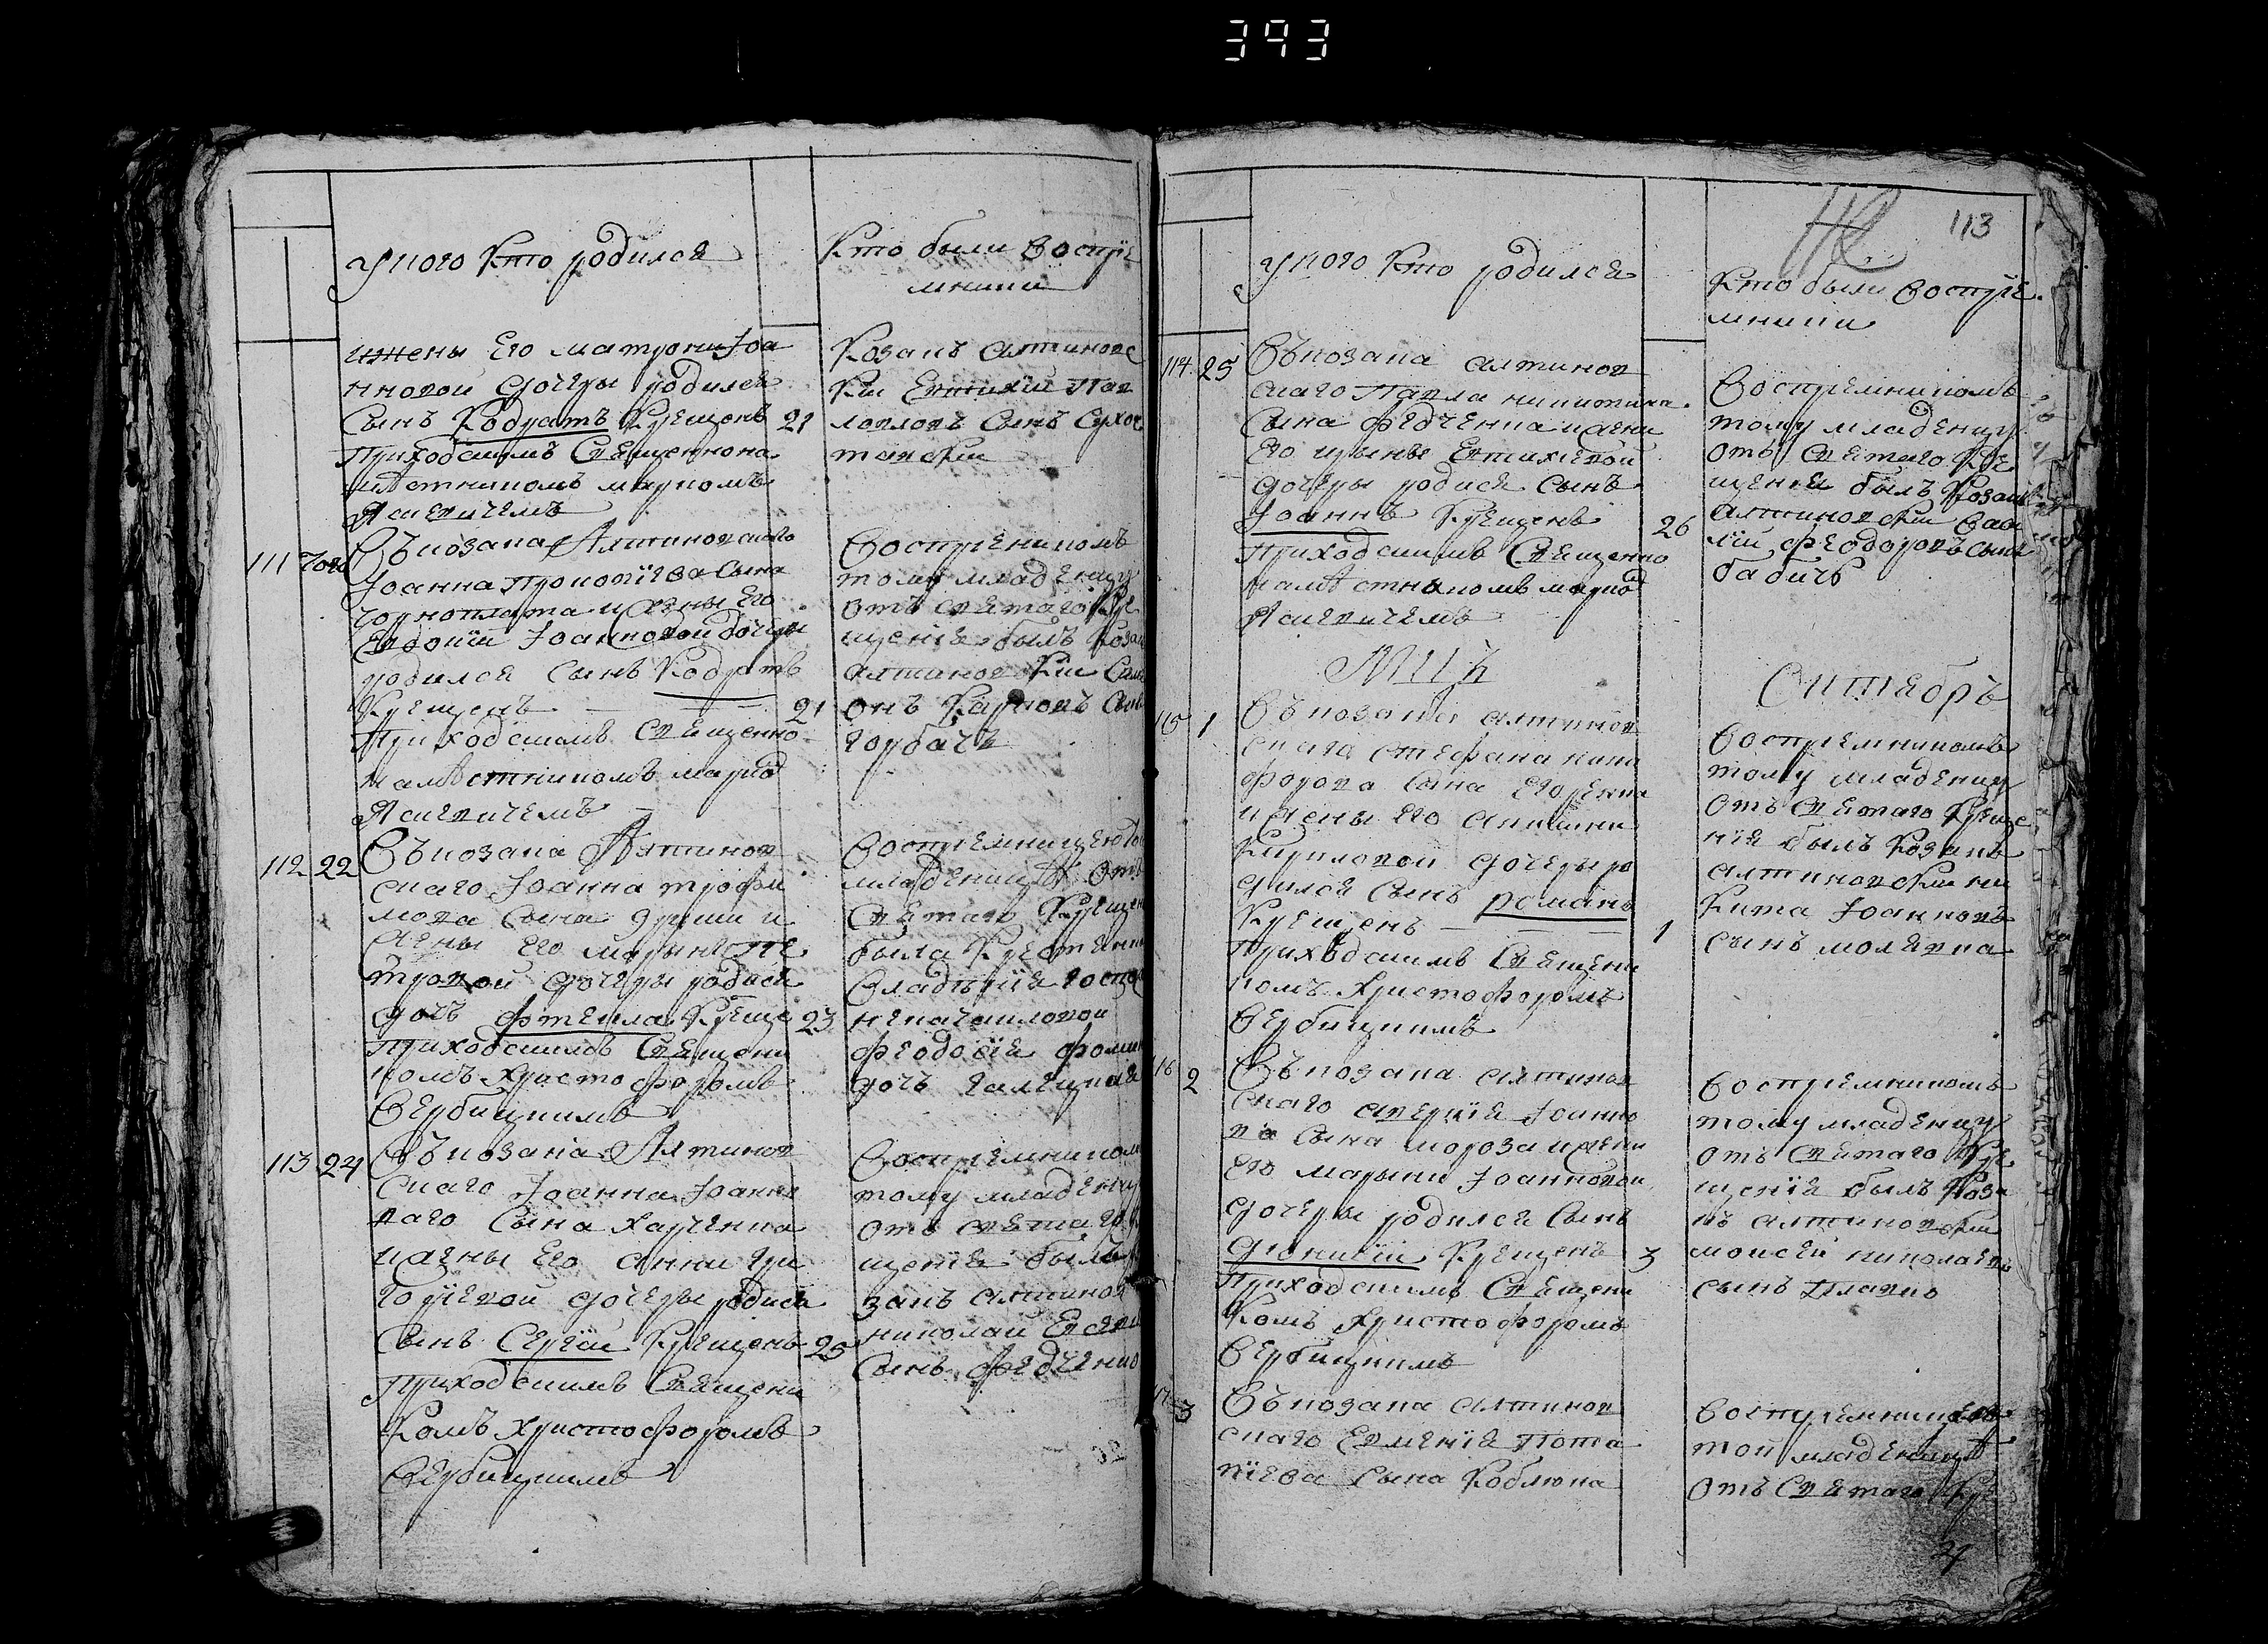 393
У кого кто родился
Кто были воспрiе
мники
и жены его матрони Iоа
нновой дочеры родился
сынъ Кодратъ крещенъ 21
приходскимъ священнона
мѣстникомъ маркомъ
Ясиевичемъ
Козакъ алтиновс
кiи Евтихiй Пав
ловловъ сынъ Сухос
тавскiи
111 того
Въ козака Алтиновскаго
Iоанна Прокопiева сына
чорноплата и жены его
Евдокiи Iоанновой дочеры
родился сынъ Кодратъ
крещенъ 21
приходскимъ священно
намѣстникомъ маркомъ
Ясиевичемъ
Воспрiемникомъ
тому младенцу
отъ святаго кре
щенiя былъ козак
алтиновскiи Сим
онъ Карповъ сынъ
горбачъ
112 22 Въ козака Алтинов
скаго Iоанна трофи
мова сына и
жены его марыны Пе
тровой дочеры родися
дочъ фтекла креще 23
приходскимъ священи
комъ христофоромъ
Вербицкимъ
Воспрiемницею той
младеницѣ отъ
святаго крещен
была крестянки
владѣнiя госпо
феодосiя фомин
дочъ галицкая
113 24 Въ козака Алтинов
скаго Iоанна Iоанно
ваго сына харченка
и жены его анни гри
горiевой дочеры родися
сынъ Сергiй крещенъ 25
приходскимъ священи
комъ христофоромъ
Вербицкимъ
Воспрiемником
тому младенцу
отъ святаго
щенiя былъ
закъ алтинов
николай Евсеви
сынъ федченко
113
У кого кто родился
Кто были воспрiе
мники
114 25 Въ козака алтинов
скаго Павла никитина
сына федченка и жени
его ирыны Евтихiевой
дочеры родися сынъ
Iоаннъ крещенъ 26
приходскимъ священно
намѣстникомъ марко
Ясиевичемъ
Воспрiемникомъ
тому младенцу
отъ святаго кре
щенiя былъ козакъ
алтиновскiи васи
лiй феодоровъ сынъ
бабичъ
Мцъ Сентябръ
115 1 Въ козака алтинов
скаго стефана ники
форова сына Егоренка
и жены его
Кириловой дочеры ро
дился сынъ романъ
крещенъ 1
приходскимъ священи
комъ христофоромъ
Вербицкимъ
Воспрiемникомъ
тому младенцу
отъ святаго креще
нiя былъ козакъ
алтиновскiи ни
кита Iоанновъ
сынъ молявка
116 2 Въ козака алтинов
скаго аверкiя Iоанно
ва сына мороза и жени
его марыни Iоанновой
дочеры родился сынъ
дионисiи крещенъ 3
приходскимъ священи
комъ христофоромъ
Вербицкимъ
Воспрiемникомъ
тому младенцу
отъ святаго кре
щенiя былъ коза
къ алтиновскiи
моисей николаевъ
сынъ
117 3 Въ козака алтинов
скаго Евменiя Пота
пiева сына Коблюка
Воспрiемникомъ
той младеницѣ
отъ святаго кре